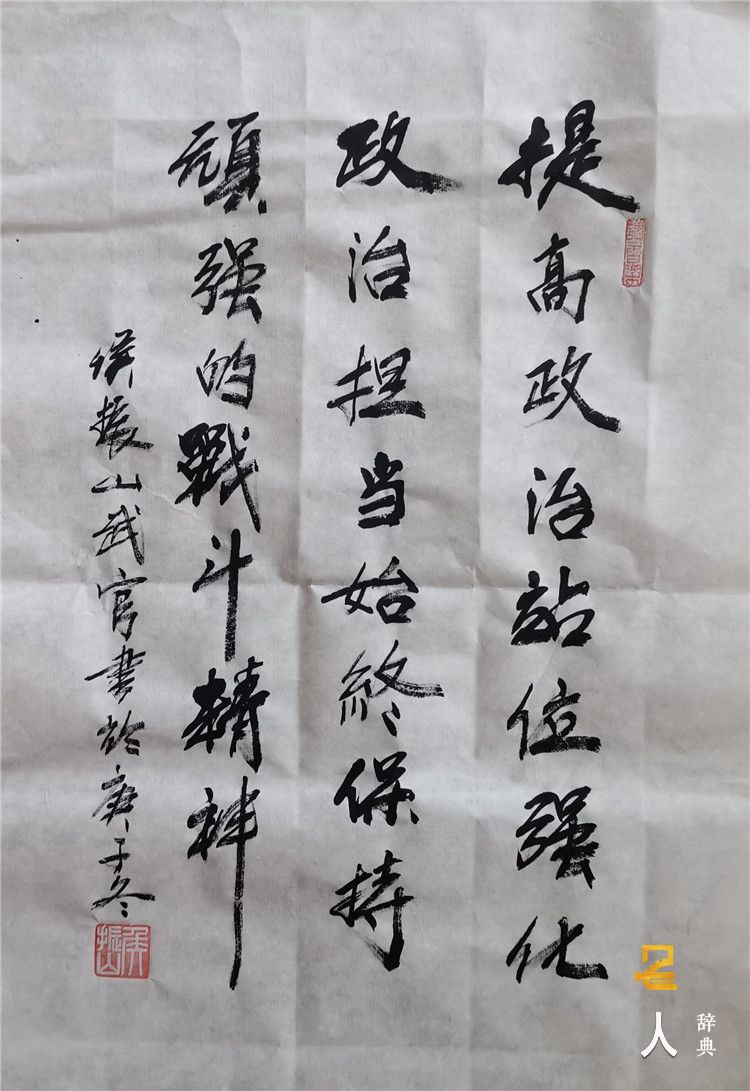 提高政治站位强化
政治担当始終保持
頑强的戰斗精神
侯振山武官書於庚子冬
侯振山
人
辞典